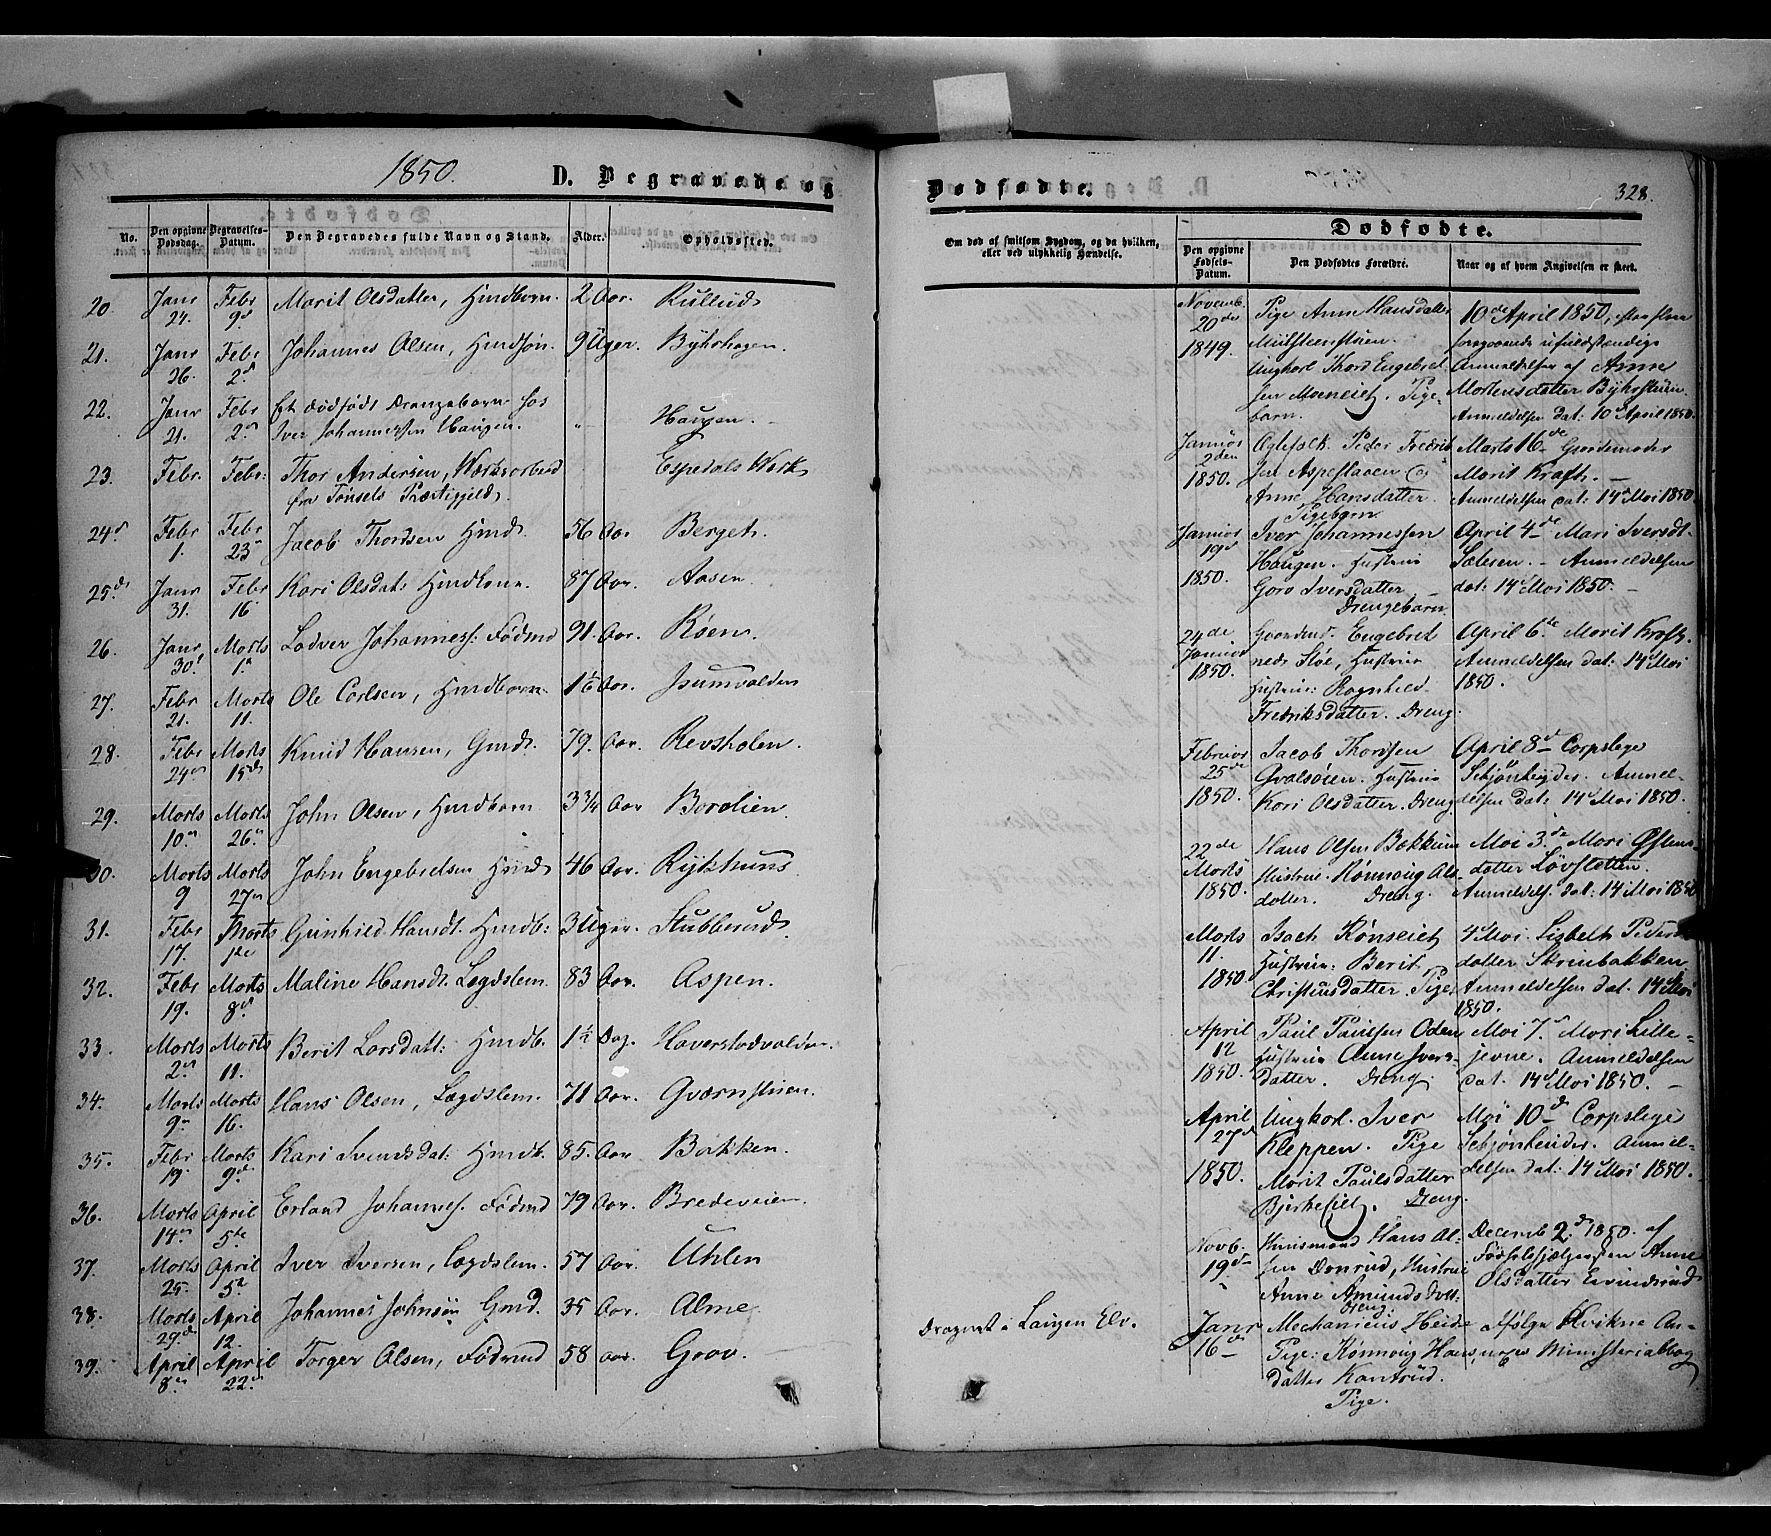 1850.
D. Begravede og
No.
Den opgivne Dødsdag.
Begravelses-Datum.
Den Begravedes fulde Navn og Stand.
Alder.
Opholdssted.
20. Janr 24. Febr 9d Marit Olsdatter, Hmdbarn. 2 Aar. Rullud
21. Janr 26. Febr 2d Johannes Olsen, Hmdsøn. 9 Uger. Byhrhagen.
22. Janr 21. Febr 2n Et dødfødt Drengebarn hos
Iver Johannessen Haugen. " Haugen.
23. Febr. Febr: Thor Andersen, Værksarbeid Espedals Værk
fra Tønsets Præstegjeld.
24d Febr 1. Febr 23n Jacob Thordsen Hmd. 56 Aar Berget.
25d Janr 31. Febr 16 Kari Olsdatt. Hmdkone. 87 Aar. Aasen.
26. Janr 30d Marts 1n Lodver Johanness. Fødrmd 91. Aar. Røen.
27. Febr 21. Marts 11. Ole Carlsen, Hmdbarn. 1½ Aar. Isumvolden
28. Febr 24n Marts 15de Knud Hansen, Gmd. 79. Aar. Revsholen.
29. Marts 10n Marts 26n John Olsen, Hmdbarn 3¾ Aar Baralien.
30. Marts 9 Marts 27n John Engebretsen Hmd 46 Aar. Rykhuus
31. Febr 17. Marts 1ste Gunhild Hansdt. Hmdb: 3 Uger. Stubberud.
32. Febr 19. Marts 8d Maline Hansdt. Lægdslem. 83 Aar. Aspen.
33. Marts 2n Marts 11. Berit Larsdatt: Hmdb. 1½ Dag. Haverstadvolden.
34. Marts 9n Marts 16. Hans Olsen, Lægdslem. 71 Aar. Qværnstuen.
35. Febr 19. Marts 9d Kari Svendsdat. Hmdk. 85. Aar Bakken.
36. Marts 14n April 5te Erland Johannes. Fødrmd 79 Aar. Bredeveien
37. Marts 25. April 5te Iver Iversen, Lægdslem. 57 Aar. Uhlen
38. Marts 29d April 12. Johannes Johnsen Gmd. 35 Aar. Alme.
39. April 8n April 22n Torger Olsen, Fødrmd 58 Aar. Graav.
Dødfødte.
328.
Om død af smitsom Sygdom, og da hvilken,
eller ved ulykkelig Hændelse.
Dødfødte.
Den opgivne Fødsels-Datum.
Den Dødfødtes Forældre.
Naar og af hvem Angivelsen er skeet.
Druknet i Laugen Elv.
Novemb. 20de 1849.
Pige Anne Hansdatter
Ungkarl Thord Engebret
sen Moeneiet. Pige-
barn.
10de April 1850, efter flere
foregaaende ufuldstændige
Anmeldelser af Anne
Mortensdatter Byhrstuen
Anmeldelsen dat. 10 April 1850.
Januar 2den 1850.
Ægtefolk. Peder Fredrik
sen Aspeslaaen og
Anne Hansdatter.
Pigebarn.
Marts 16de Gjordemoder
Marit Kraft.
Anmeldelsen dat: 14 Mai 1850
Januar 19d 1850.
Iver Johannessen
Haugen. Hustrue
Goro Iversdatter
Drengebarn.
April 4de Mari Iversdt.
Anmeldelsen
dat: 14 Mai 1850.
24de Januar 1850.
Gaardmd. Engebret
nedr Sloe, Hustrue
Hustrue: Ragnhild
Fredriksdatter. Dreng.
April 6te Marit Kraft.
Anmeldelsen dat: 14 Mai
1850.
Februar 25de 1850.
Jacob Thordsen
Hustrue
Kari Olsdatter. Dreng
April 8de Corpslege
Schjønheyder. Anmel-
delsen dat: 14 Mai 1850.
22de Marts 1850.
Hans Olsen Bækkum
Hustrue. Rønnoug Ols
datter. Dreng.
Mai 3de Mari Østens-
datter Løvsletten.
Anmeldels. dat: 14 Mai 1850
Marts 11. 1850.
Isach Rønseiet
Hustrue: Berit
Christensdatter. Pige.
4 Mai. Lisbeth Peders
datter Skreubakken,
Anmeldelsen dat. 14 Mai
1850.
April 12 1850.
Paul Paulsen Oden
Hustrue Anne Ivers-
datter. Dreng.
Mai 7de Mari Lille-
jevne. Anmeldelsen
dat. 14 Mai 1850.
April 27d 1850.
Ungkarl. Iver
Kleppen. Pige
Marit Paulsdatter
Bjerkeeiet. Dreng.
Mai 10de Corpslege
Schjønheider. Anmel-
delsen dat: 14 Mai 1850.
Novb. 19de
Huusmand Hans Ol-
sen Donrud, Hustrue
Anne Amundsdatt.
Dreng.
Decemb 2d 1850. af
Fødselshjælpersken Anne
Olsdatter Eivindsrud
Janr 16de
Mechanicus Heide
Pige: Rønnoug Hans
datter Kantrud.
Pige.
ifølge Kvikne An-
nexes Ministerialbog